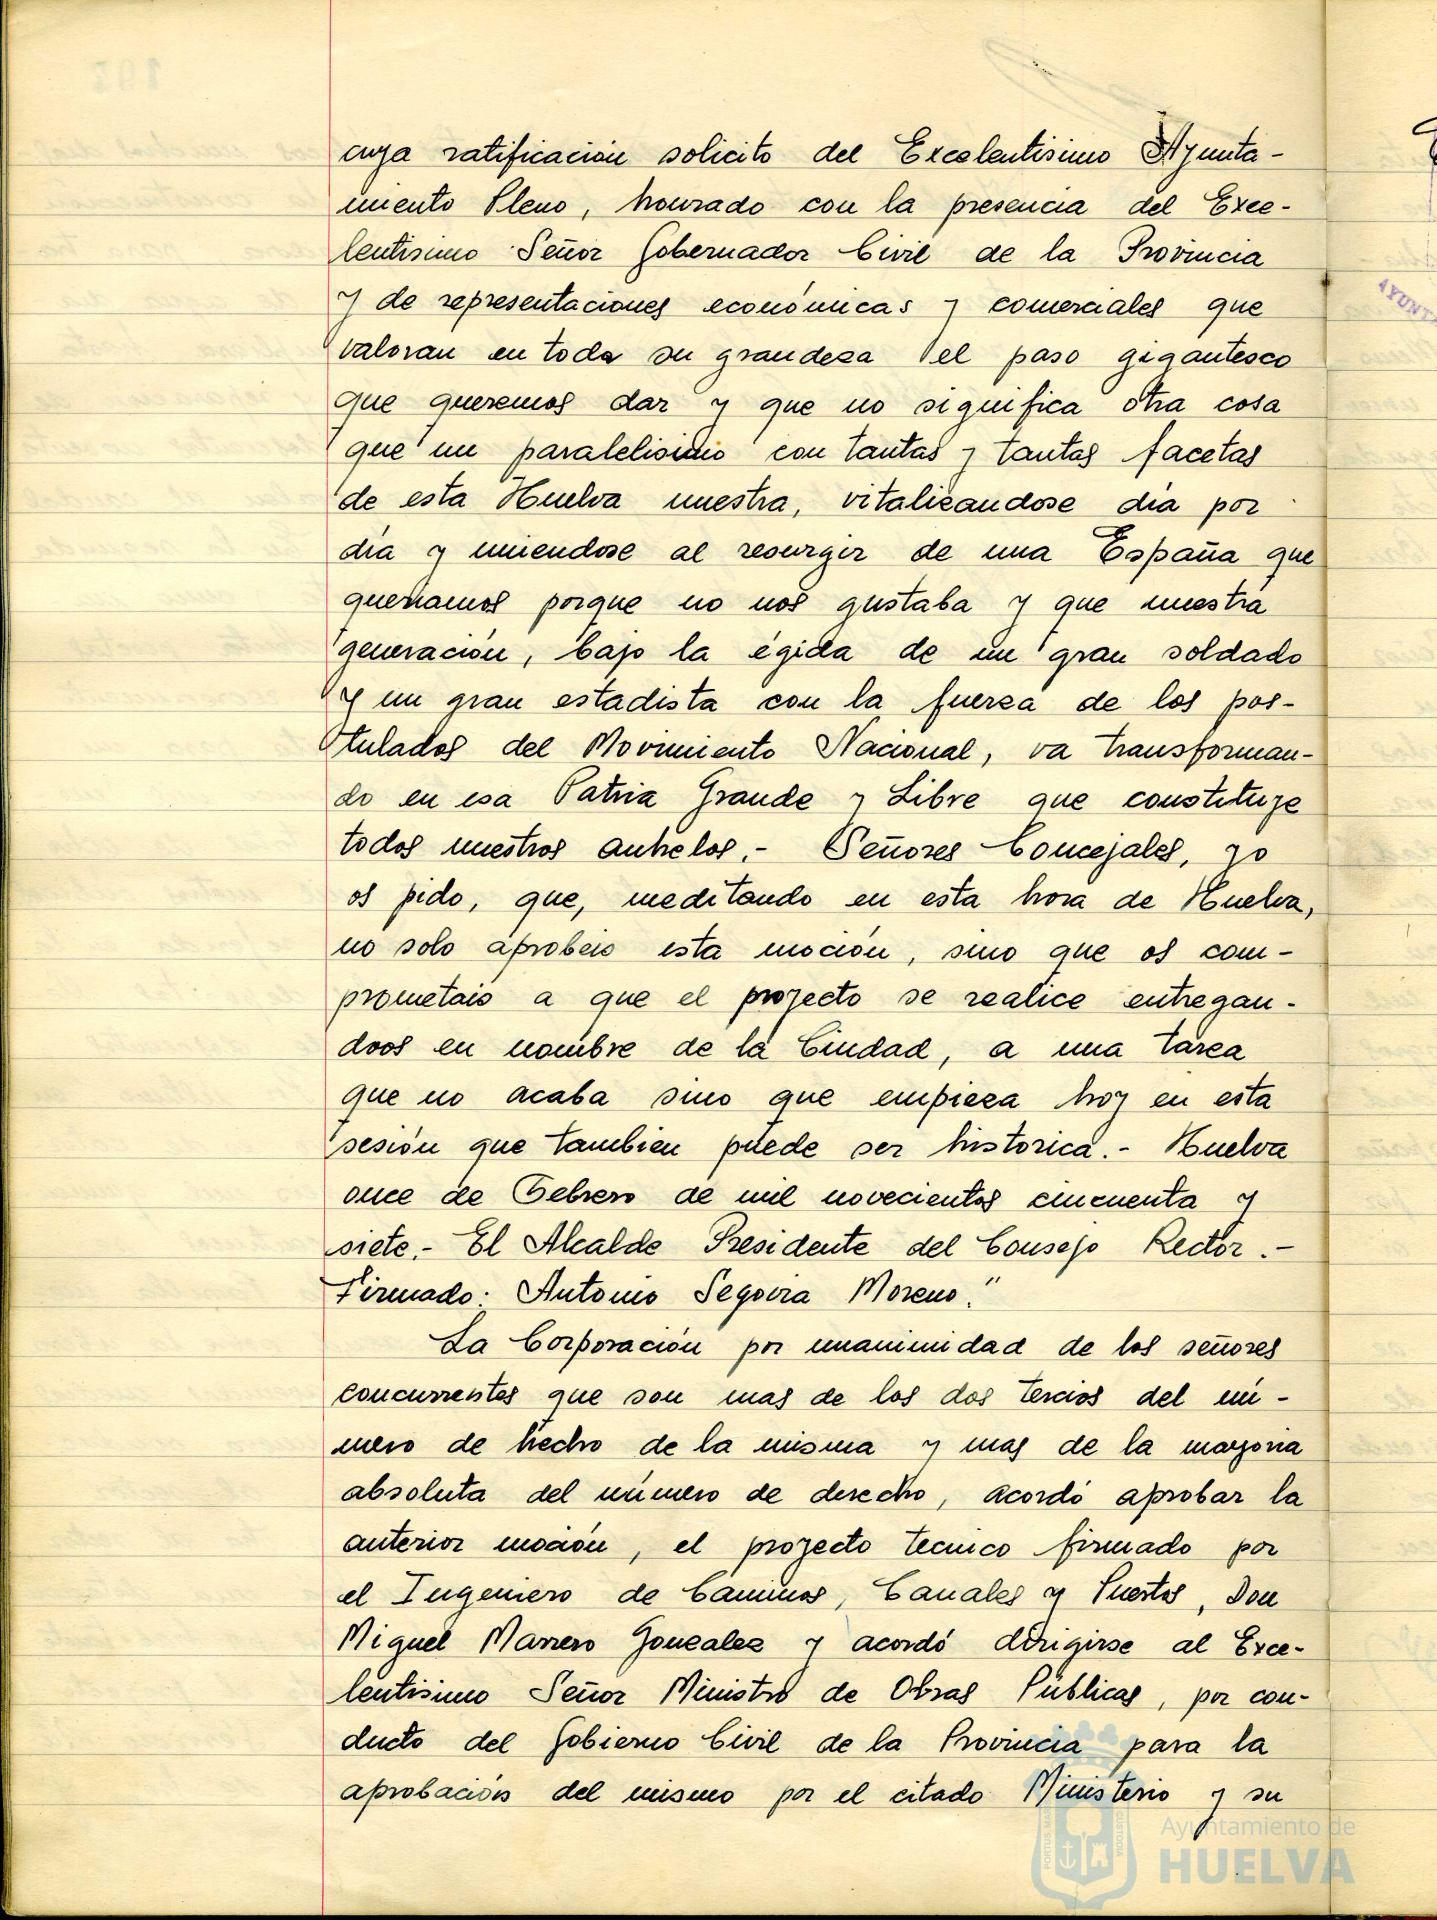 cuya ratificación solicito del Excelentisimo Ayunta-
miento Pleno, honrado con la presencia del Exce-
lentisimo Señor Gobernador Civil de la Provincia
y de representaciones económicas y comerciales que
valoran en toda su grandeza el paso gigantesco
que queremos dar y que no significa otra cosa
que un paralelismo con tantas y tantas facetas
de esta Huelva nuestra, vitalizandose dia por
dia y uniendose al resurgir de una España que
queriamos porque no nos gustaba y que nuestra
generación, bajo la égida de un gran soldado
y un gran estadista con la fuerza de los pos-
tulados del Movimiento Nacional, va transforman-
do en esa Patria Grande y Libre que constituye
todos nuestros anhelos.- Señores Concejales, yo
os pido, que, meditando en esta hora de Huelva,
no solo aprobeis esta moción, sino que os com-
prometais a que el proyecto se realice entregan-
doos en nombre de la Ciudad, a una tarea
que no acaba sino que empieza hoy en esta
sesión que tambien puede ser historica.- Huelva
once de Febrero de mil novecientos cincuenta y
siete.- El Alcalde Presidente del Consejo Rector.-
Firmado: Antonio Segovia Moreno."
La Corporación por unanimidad de los señores
concurrentes que son mas de los dos tercios del nú-
mero de hecho de la misma y mas de la mayoria
absoluta del número de derecho, acordó aprobar la
anterior moción, el proyecto tecnico firmado por
el Ingeniero de Caminos, Canales y Puertos, Don
Miguel Marrero Gonzalez y acordó dirigirse al Exce-
lentisimo Señor Ministro de Obras Públicas, por con-
ducto del Gobierno Civil de la Provincia para la
aprobación del mismo por el citado Ministerio y su
Ayuntamiento de
HUELVA
AYUNTA